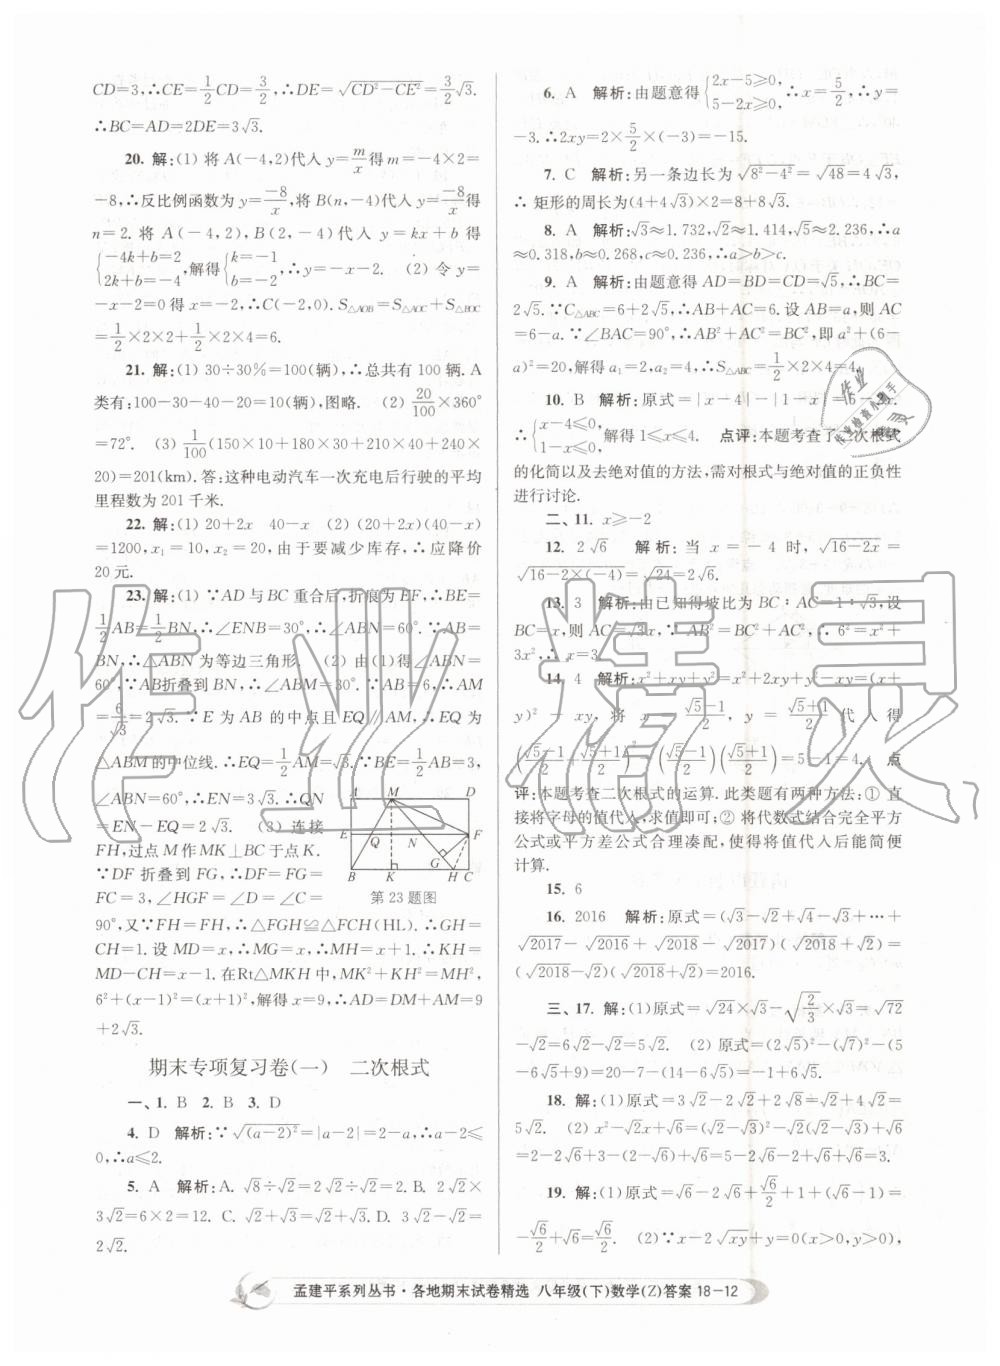 CD=3,∴CE=1/2CD=3/2,∴DE=√(CD²−CE²)=3/2√3.
∴BC=AD=2DE=3√3.
20. 解:(1) 将 A(−4,2)代入 y=m/x得 m=−4×2=
−8,∴反比例函数为 y=−8/x,将 B(n,−4)代入 y=−8/x得
n=2. 将 A(−4,2),B(2,−4)代入 y=kx+b 得
{−4k+b=2, 2k+b=−4, 解得{k=−1, b=−2, ∴y=−x−2. (2) 令 y=
−x−2=0 得 x=−2,∴C(−2,0). S△AOB=S△AOC+S△BOC
=1/2×2×2+1/2×2×4=6.
21. 解:(1) 30÷30%=100(辆),∴总共有 100 辆. A
类有:100−30−40−20=10(辆),图略. (2) 20/100×360°
=72°. (3) 1/100(150×10+180×30+210×40+240×
20)=201(km). 答:这种电动汽车一次充电后行驶的平均
里程数为 201 千米.
22. 解:(1) 20+2x 40−x (2) (20+2x)(40−x)
=1200,x₁=10,x₂=20,由于要减少库存,∴应降价
20 元.
23. 解:(1) ∵AD 与 BC 重合后,折痕为 EF,∴BE=
1/2AB=1/2BN,∴∠ENB=30°,∴∠ABN=60°. ∵AB=
BN,∴△ABN 为等边三角形. (2) 由(1)得∠ABN=
60°,∵AB折叠到 BN,∴∠ABM=30°. ∵AB=6,∴AM
=6/√3=2√3. ∵E 为 AB 的中点且 EQ∥AM,∴EQ 为
△ABM 的中位线. ∴EQ=1/2AM=√3. ∵BE=1/2AB=3,
∠ABN=60°,∴EN=3√3. ∴QN
=EN−EQ=2√3. (3) 连接
FH,过点 M 作 MK⊥BC 于点 K.
∵DF 折叠到 GF,∴DF=FG=
FC=3,∠HGF=∠D=∠C=
A M D
E F
Q N
G
B K H C
第 23 题图
90°,又∵FH=FH,∴△FGH≌△FCH(HL). ∴GH=
CH=1. 设 MD=x,∴MG=x,∴MH=x+1. ∴KH=
MD−CH=x−1. 在Rt△MKH 中,MK²+KH²=MH²,
6²+(x−1)²=(x+1)²,解得 x=9,∴AD=DM+AM=9
+2√3.
期末专项复习卷(一) 二次根式
一、1. B 2. B 3. D
4. D 解析:∵√(a−2)²=|a−2|=2−a,∴a−2≤
0,∴a≤2.
5. A 解析:A. √8÷√2=2√2÷√2=2. B. 2√2×
3√2=6×2=12. C. √2+√3=√2+√3. D. 3√2−√2=
2√2.
6. A 解析:由题意得{2x−5≥0, 5−2x≥0, ∴x=5/2,∴y=
−3. ∴2xy=2×5/2×(−3)=−15.
7. C 解析:另一条边长为√(8²−4²)=√48=4√3,
∴矩形的周长为(4+4√3)×2=8+8√3.
8. A 解析:√3≈1.732,√2≈1.414,√5≈2.236,∴a
≈0.318,b≈0.268,c≈0.236,∴a>b>c.
9. A 解析:由题意得 AD=BD=CD=√5,∴BC=
2√5. ∵C△ABC=6+2√5,∴AB+AC=6. 设 AB=a,则 AC
=6−a. ∵∠BAC=90°,∴AB²+AC²=BC²,即 a²+(6−
a)²=20,解得 a₁=2,a₂=4,∴S△ABC=1/2×2×4=4.
10. B 解析:原式=|x−4|−|1−x|=5−2x.
∴{x−4≤0, 1−x≤0, 解得 1≤x≤4. 点评:本题考查了二次根式
的化简以及去绝对值的方法,需对根式与绝对值的正负性
进行讨论.
二、11. x≥−2
12. 2√6 解析:当 x=−4 时,√(16−2x)=
√(16−2×(−4))=√24=2√6.
13. 3 解析:由已知得坡比为 BC∶AC=1∶√3,设
BC=x,则 AC=√3x,∵AB²=BC²+AC²,∴6²=x²+
3x²,∴x=3.
14. 4 解析:x²+xy+y²=x²+2xy+y²−xy=(x+
y)²−xy,将 x=(√5−1)/2,y=(√5+1)/2 代入得
((√5−1)/2+(√5+1)/2)²−((√5−1)/2)((√5+1)/2)=5−1=4. 点
评:本题考查二次根式的运算. 此类题有两种方法:① 直
接将字母的值代入,求值即可;② 将代数式结合完全平方
公式或平方差公式合理凑配,使得将值代入后能简便
计算.
15. 6
16. 2016 解析:原式=(√3−√2+√4−√3+⋯+
√2017−√2016+√2018−√2017)(√2018+√2)=
(√2018−√2)(√2018+√2)=2016.
三、17. 解:(1)原式=√24×√3−√(2/3)×√3=√72
−√2=6√2−√2=5√2. (2) 原式=(2√5)²−(√7)²−(5
−6√5+9)=20−7−(14−6√5)=−1+6√5.
18. 解:(1)原式=3√2−2√2+√8=√2+4√2=
5√2. (2) x²−√2x+√6=(√2−√3)²−√2(√2−√3)+√6
=2−2√6+3−(2−√6)+√6=5−2√6−2+√6+√6=3.
19. 解:(1)原式=√6−2√6+√6/2+1+(√6−1)=
−√6/2+√6=√6/2. (2)∵x−2√(xy)+y=0(x>0,y>0),
作业
作业精灵
孟建平系列丛书·各地期末试卷精选 八年级(下)数学(Z)答案 18−12